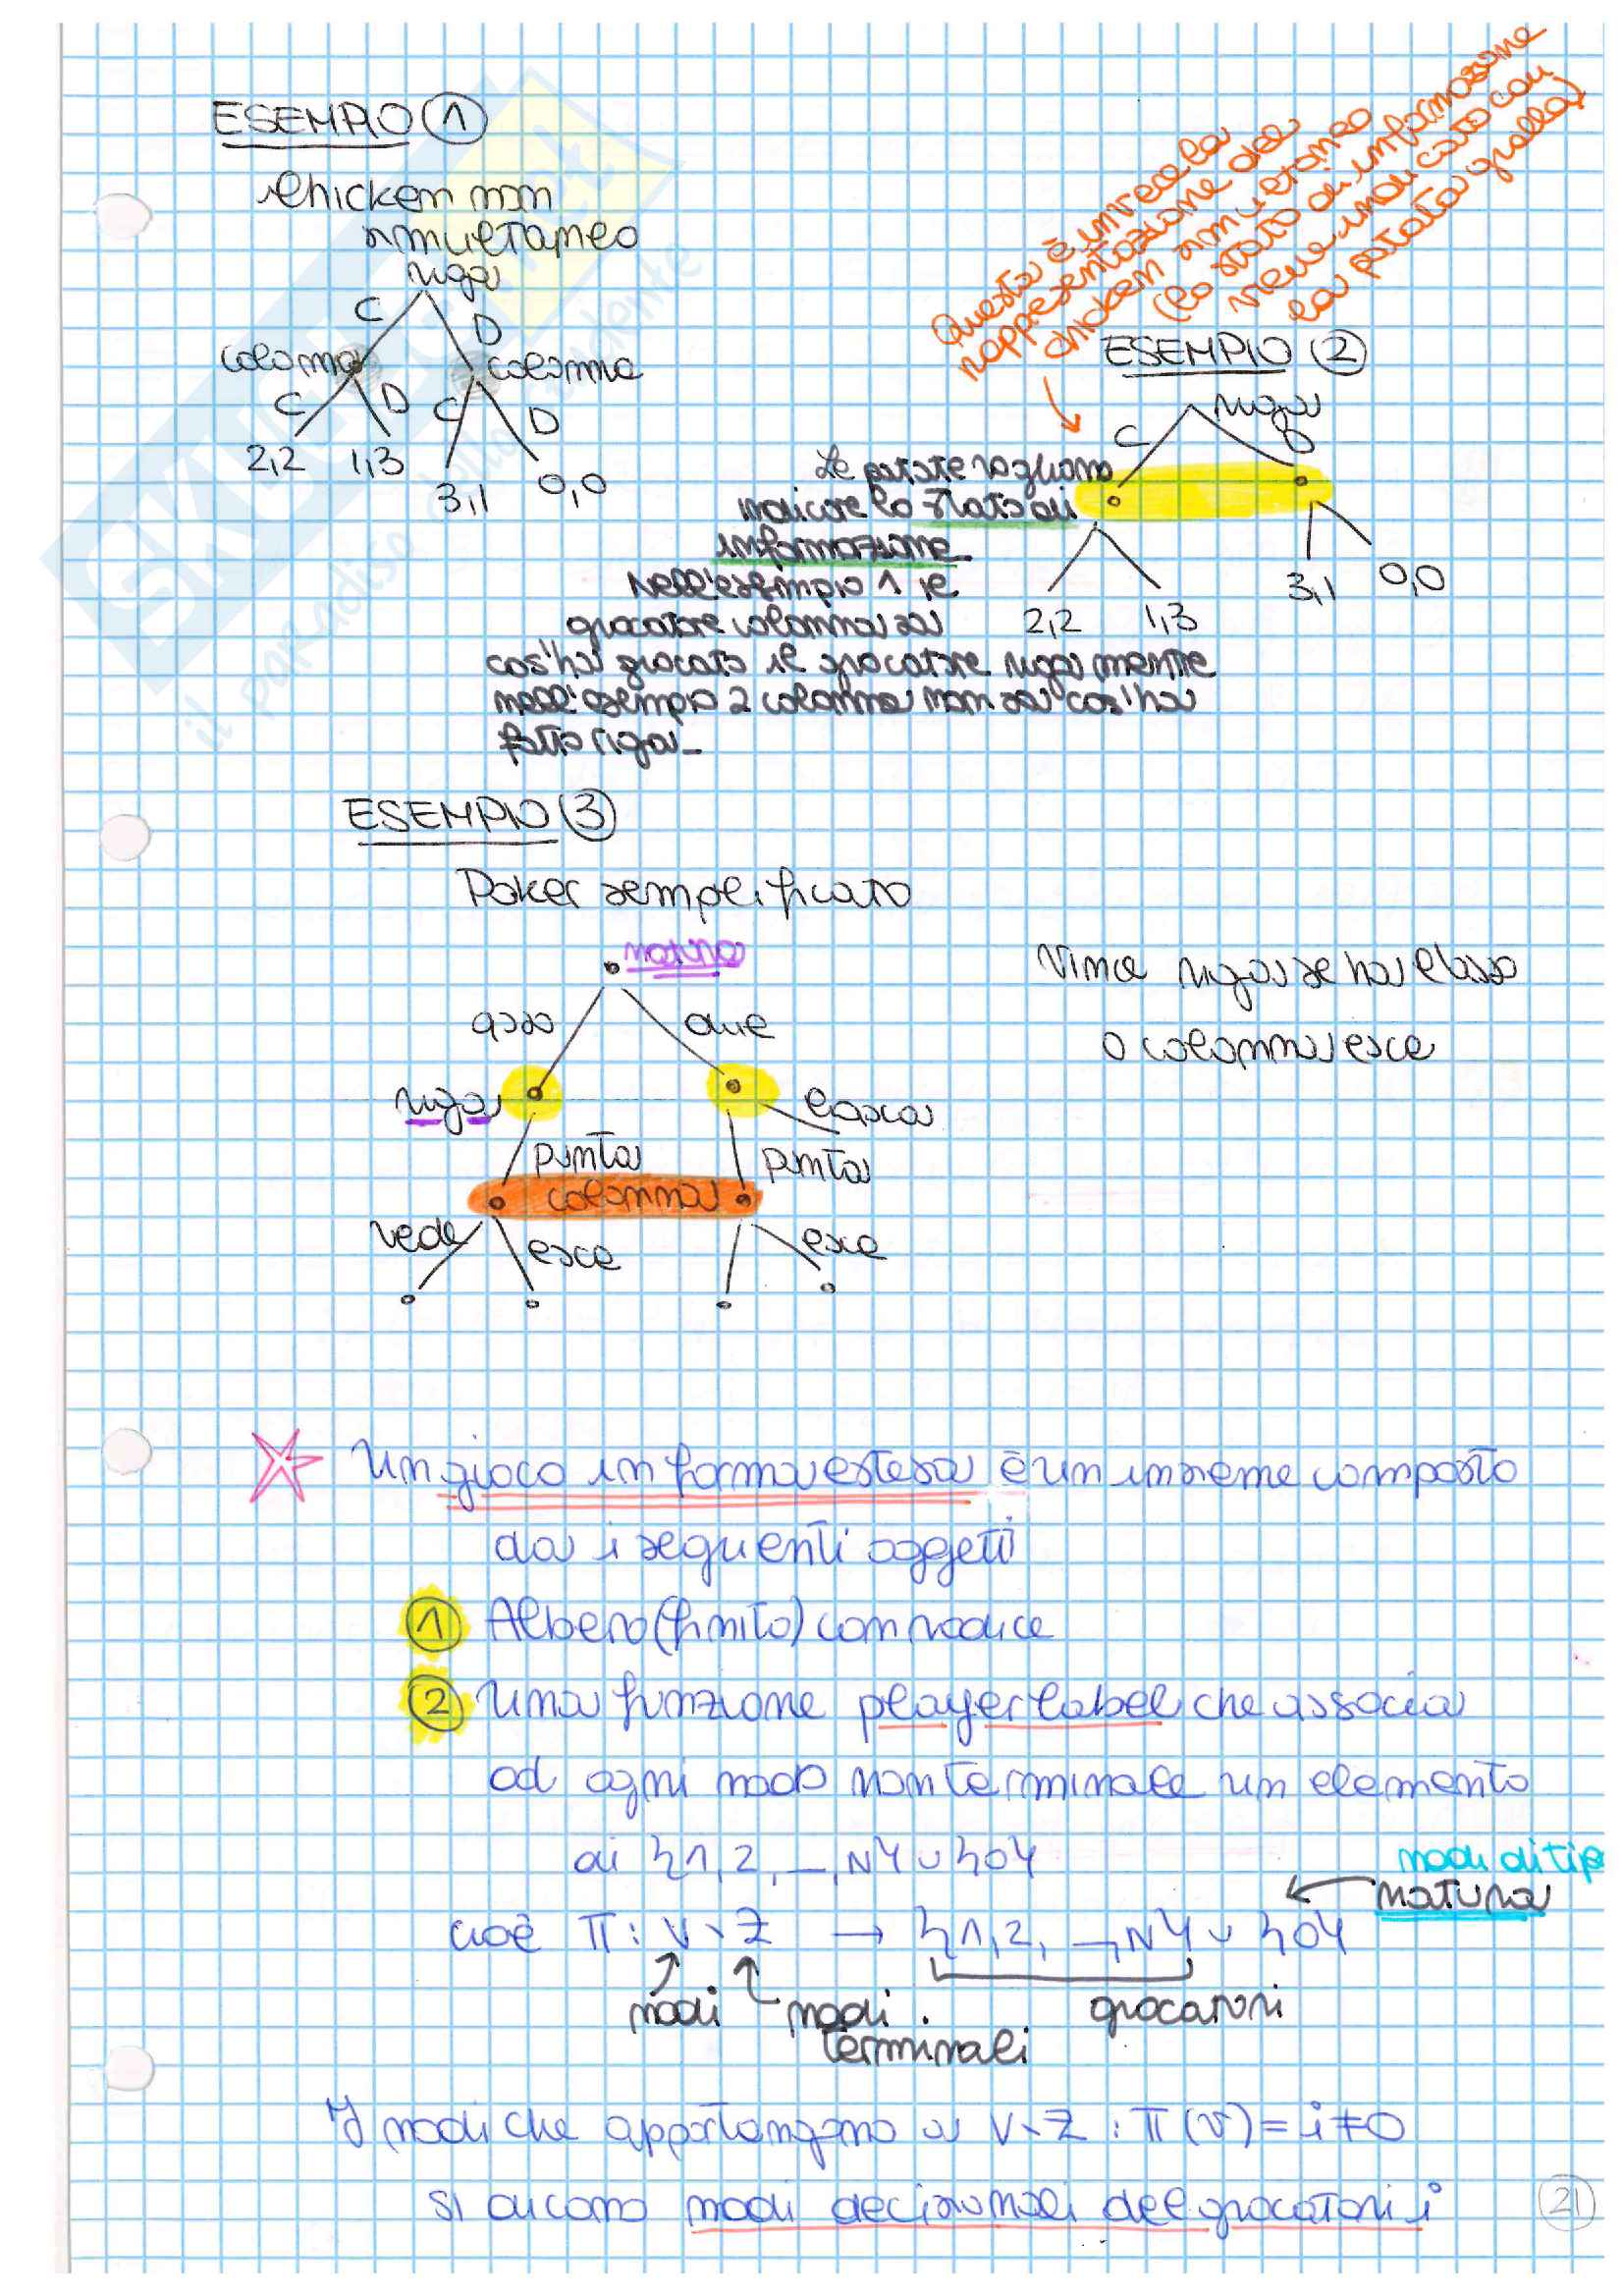 ESEMPIO ①
Chicken non
simultaneo
riga
C
D
colonna
colonna
C
D
C
D
2,2
1,3
3,1
0,0
Questa è invece la
rappresentazione del
chicken simultaneo
(lo stato di informazione
viene indicato con
la patata gialla)
ESEMPIO ②
riga
C
D
Le patate vogliono
indicare lo stato di
informazione.
Nell'esempio 1 il
giocatore colonna sa
cos'ha giocato il giocatore riga mentre
nell'esempio 2 colonna non sa cos'ha
fatto riga_
2,2
1,3
3,1
0,0
ESEMPIO ③
Poker semplificato
natura
asso
due
riga
lascia
punta
punta
colonna
vede
esce
esce
Vince riga se ha l'asso
o colonna esce
Un gioco in forma estesa è un insieme composto
da i seguenti oggetti
① Albero (finito) con radice
② Una funzione player label che associa
ad ogni nodo non terminale un elemento
di {1,2, _,N} ∪ {0}
nodi di tipo
natura
cioè π: V \ Z → {1,2, _,N} ∪ {0}
nodi
nodi
terminali
giocatori
I nodi che appartengono a V \ Z : π(v) = i ≠ 0
si dicono nodi decisionali del giocatori i
21
SKUOLA.net
il paradiso dello studente